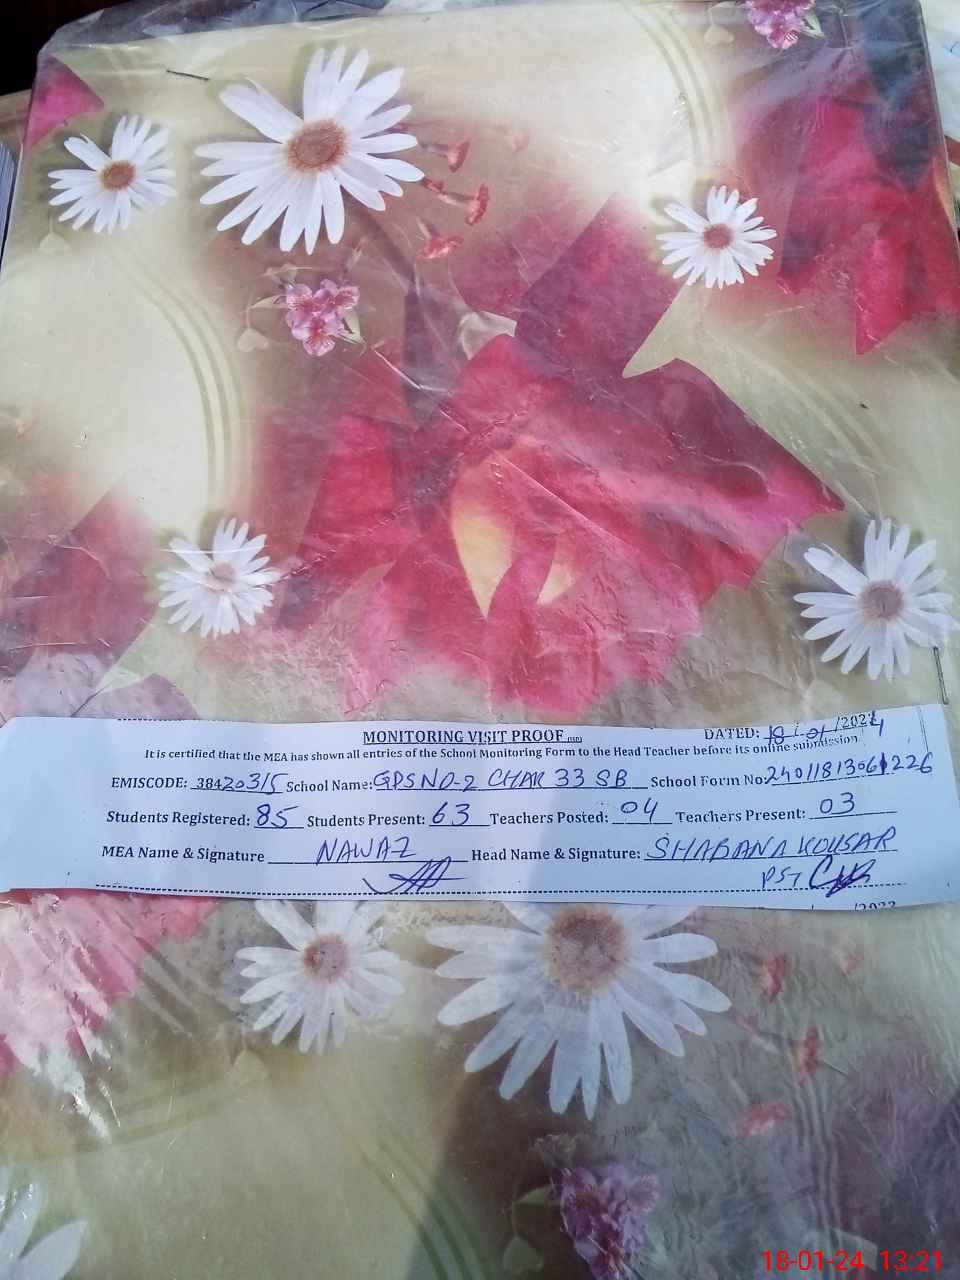 MONITORING VISIT PROOF
DATED: 18-01/2024
It is certified that the MEA has shown all entries of the School Monitoring Form to the Head Teacher before its online submission
EMISCODE: 38420315 School Name: GPS NO-2 CHAK 33 SB School Form No:
Students Registered: 85 Students Present: 63 Teachers Posted: 04 Teachers Present: 03
MEA Name & Signature NAWAZ Head Name & Signature: SHABANA KOUSAR
PST
18-01-24 13:21